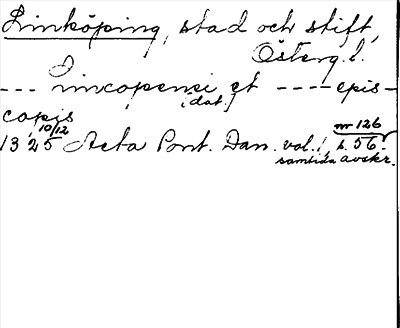 Linköping, stad och stift,
Österg.l.
--- incopensi et ---- epis-
[dat.]
copis
13 10/12 25 Acta Pont. Dan. vol. 1, nr 126 s. 56.
samtida avskr.